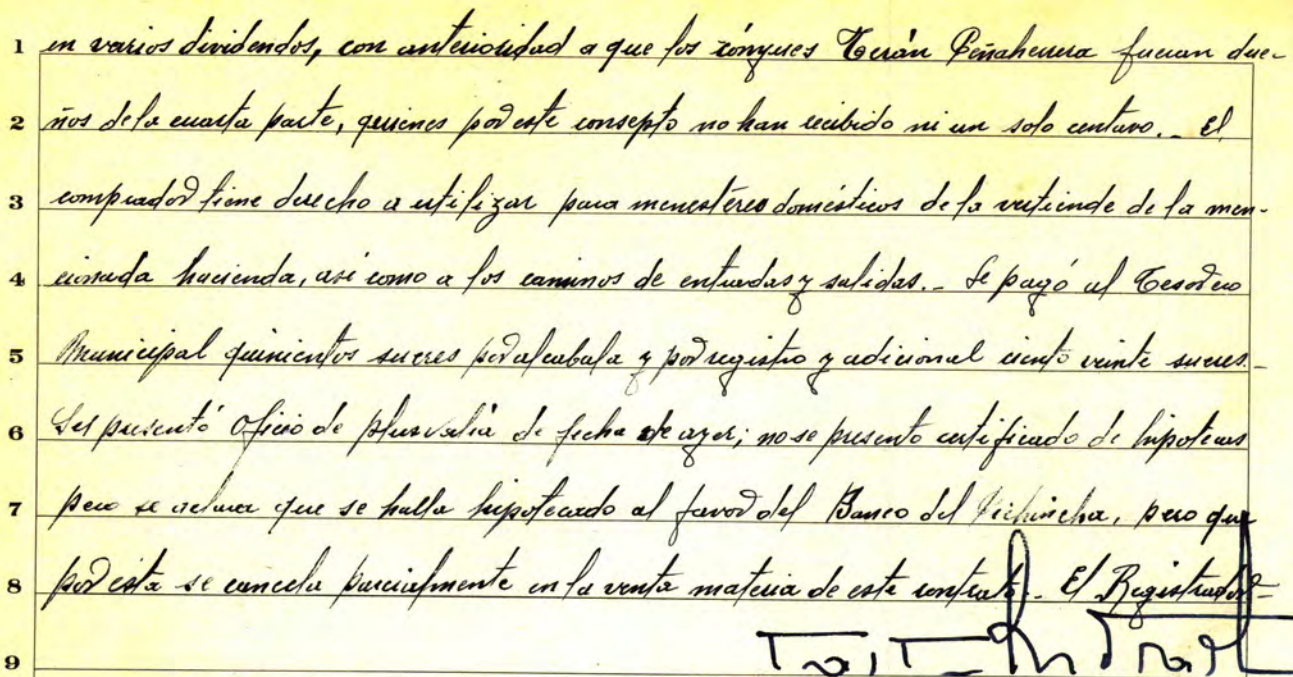 1 en varios dividendos, con anterioridad a que los cónyues Terán Peñaherrera fueran due-
2 ños de la cuarta parte, quienes por este consepto no han recibido ni un solo centavo._ El
3 comprador tiene derecho a utilizar para menestéres domésticos de la vertiende de la men-
4 cionada hacienda, asi como a los caminos de entradas y salidas._ Se pagó al Tesorero
5 Municipal quinientos sucres por alcabala y por registro y adicional ciento veinte sucres._
6 Ses presentó Oficio de plusvalía de fecha de ayer; no se presento certificado de hipotecas
7 pero se aclara que se halla hipotecado al favor del Banco del Pichincha, pero que
8 por ésta se cancela parcialmente en la venta materia de este contrato._ El Registrador-
9